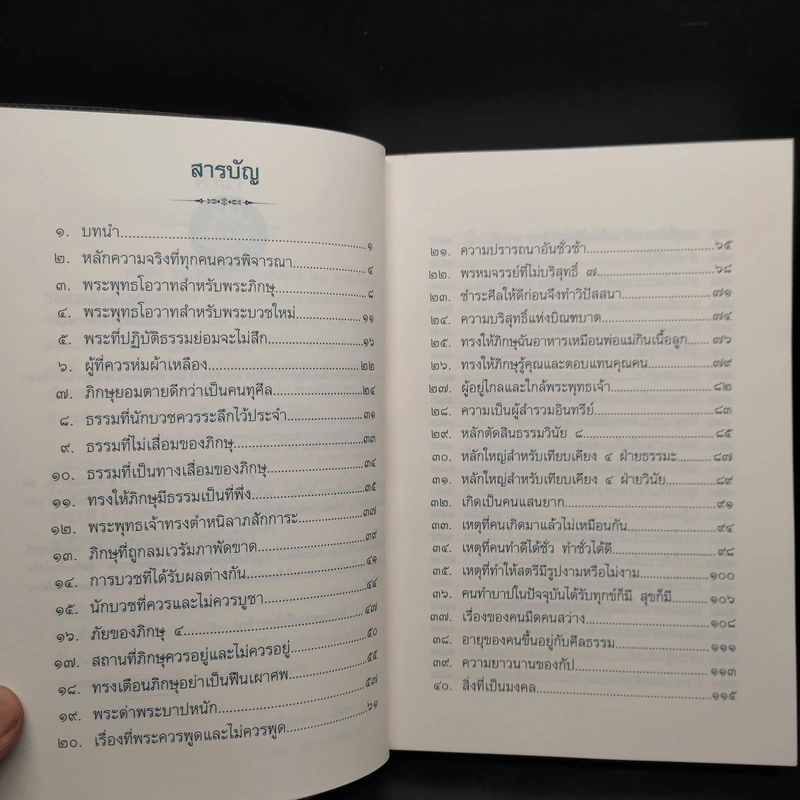 สารบัญ
๑. บทนำ.....๑
๒. หลักความจริงที่ทุกคนควรพิจารณา.....๔
๓. พระพุทธโอวาทสำหรับพระภิกษุ.....๘
๔. พระพุทธโอวาทสำหรับพระบวชใหม่.....๑๑
๕. พระที่ปฏิบัติธรรมย่อมจะไม่สึก.....๑๖
๖. ผู้ที่ควรห่มผ้าเหลือง.....๒๒
๗. ภิกษุยอมตายดีกว่าเป็นคนทุศีล.....๒๔
๘. ธรรมที่นักบวชควรระลึกไว้ประจำ.....๓๑
๙. ธรรมที่ไม่เสื่อมของภิกษุ.....๓๓
๑๐. ธรรมที่เป็นทางเสื่อมของภิกษุ.....๓๔
๑๑. ทรงให้ภิกษุมีธรรมเป็นที่พึ่ง.....๓๕
๑๒. พระพุทธเจ้าทรงตำหนิลาภสักการะ.....๓๗
๑๓. ภิกษุที่ถูกลมเวรัมภาพัดขาด.....๓๙
๑๔. การบวชที่ได้รับผลต่างกัน.....๔๑
๑๕. นักบวชที่ควรและไม่ควรบูชา.....๔๔
๑๖. ภัยของภิกษุ ๔.....๔๗
๑๗. สถานที่ภิกษุควรอยู่และไม่ควรอยู่.....๕๐
๑๘. ทรงเตือนภิกษุอย่าเป็นฟืนเผาศพ.....๕๕
๑๙. พระด่าพระบาปหนัก.....๕๗
๒๐. เรื่องที่พระควรพูดและไม่ควรพูด.....๖๑
๒๑. ความปรารถนาอันชั่วช้า.....๖๕
๒๒. พรหมจรรย์ที่ไม่บริสุทธิ์ ๗.....๖๘
๒๓. ชำระศีลให้ดีก่อนจึงทำวิปัสสนา.....๗๑
๒๔. ความบริสุทธิ์แห่งบิณฑบาต.....๗๔
๒๕. ทรงให้ภิกษุฉันอาหารเหมือนพ่อแม่กินเนื้อลูก.....๗๖
๒๖. ทรงให้ภิกษุรู้คุณและตอบแทนคุณคน.....๗๙
๒๗. ผู้อยู่ไกลและใกล้พระพุทธเจ้า.....๘๒
๒๘. ความเป็นผู้สำรวมอินทรีย์.....๘๓
๒๙. หลักตัดสินธรรมวินัย ๘.....๘๕
๓๐. หลักใหญ่สำหรับเทียบเคียง ๔ ฝ่ายธรรมะ.....๘๗
๓๑. หลักใหญ่สำหรับเทียบเคียง ๔ ฝ่ายวินัย.....๘๙
๓๒. เกิดเป็นคนแสนยาก.....๙๑
๓๓. เหตุที่คนเกิดมาแล้วไม่เหมือนกัน.....๙๔
๓๔. เหตุที่คนทำดีได้ชั่ว ทำชั่วได้ดี.....๙๘
๓๕. เหตุที่ทำให้สตรีมีรูปงามหรือไม่งาม.....๑๐๐
๓๖. คนทำบาปในปัจจุบันได้รับทุกข์ก็มี สุขก็มี.....๑๐๖
๓๗. เรื่องของคนมืดคนสว่าง.....๑๐๘
๓๘. อายุของคนขึ้นอยู่กับศีลธรรม.....๑๑๑
๓๙. ความยาวนานของกัป.....๑๑๓
๔๐. สิ่งที่เป็นมงคล.....๑๑๕